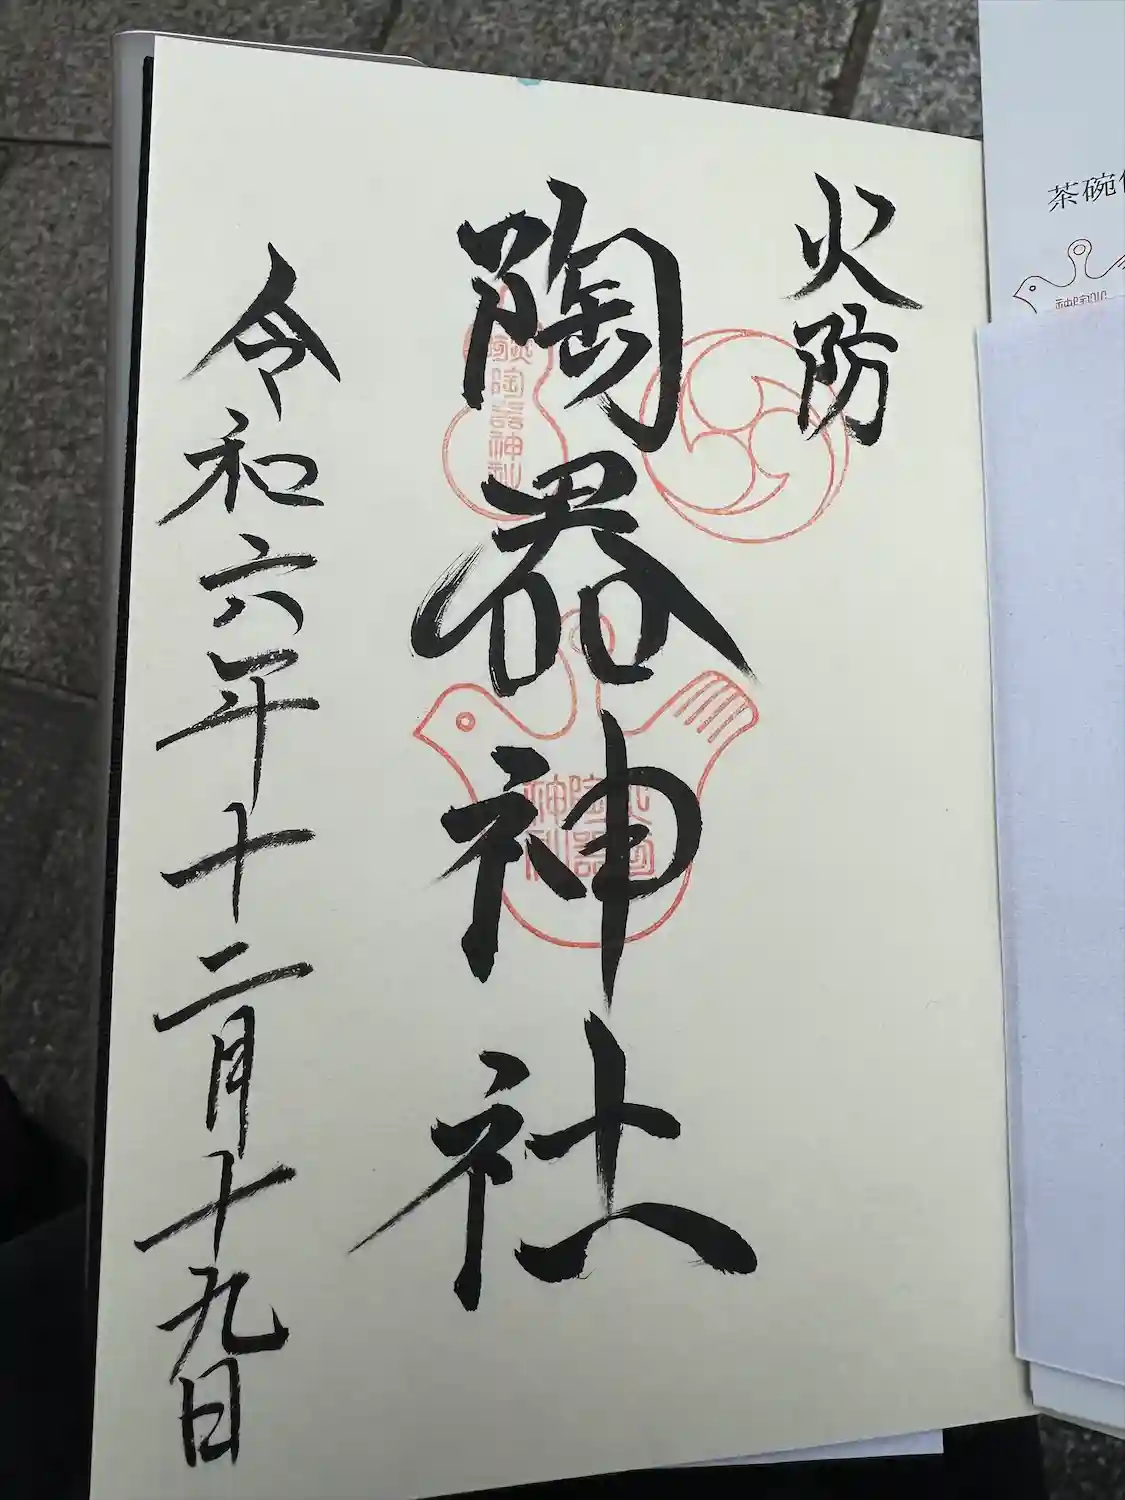 火防
陶器神社
令和六年十二月十九日
火防陶器神社
火防陶器神社
茶碗